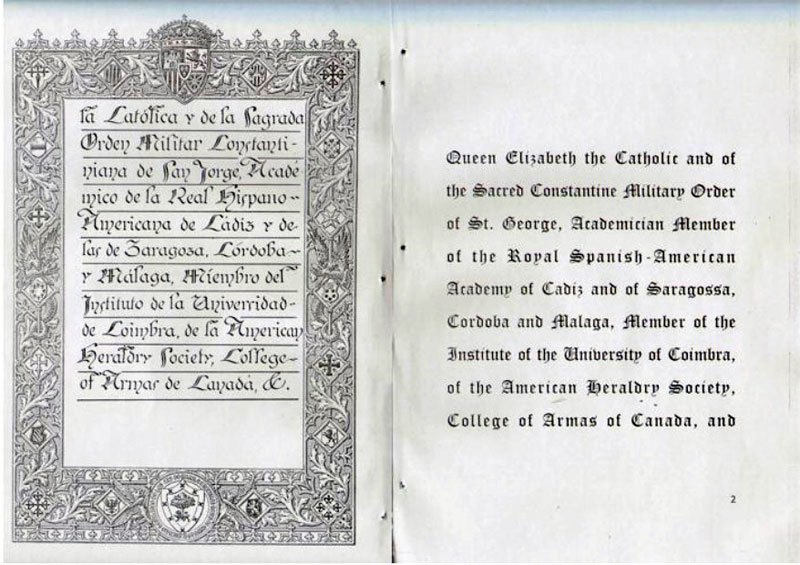 la Católica y de la Sagrada
Orden Militar Constanti-
niana de San Jorge, Acadé
mico de la Real Hispano-
Americana de Cádiz y de
las de Zaragoza, Córdoba
y Málaga, Miembro del
Instituto de la Universidad
de Coimbra, de la American
Heraldry Society, College
of Armas de Canadá, &.
Queen Elizabeth the Catholic and of
the Sacred Constantine Military Order
of St. George, Academician Member
of the Royal Spanish-American
Academy of Cadiz and of Saragossa,
Cordoba and Malaga, Member of the
Institute of the University of Coimbra,
of the American Heraldry Society,
College of Armas of Canada, and
2